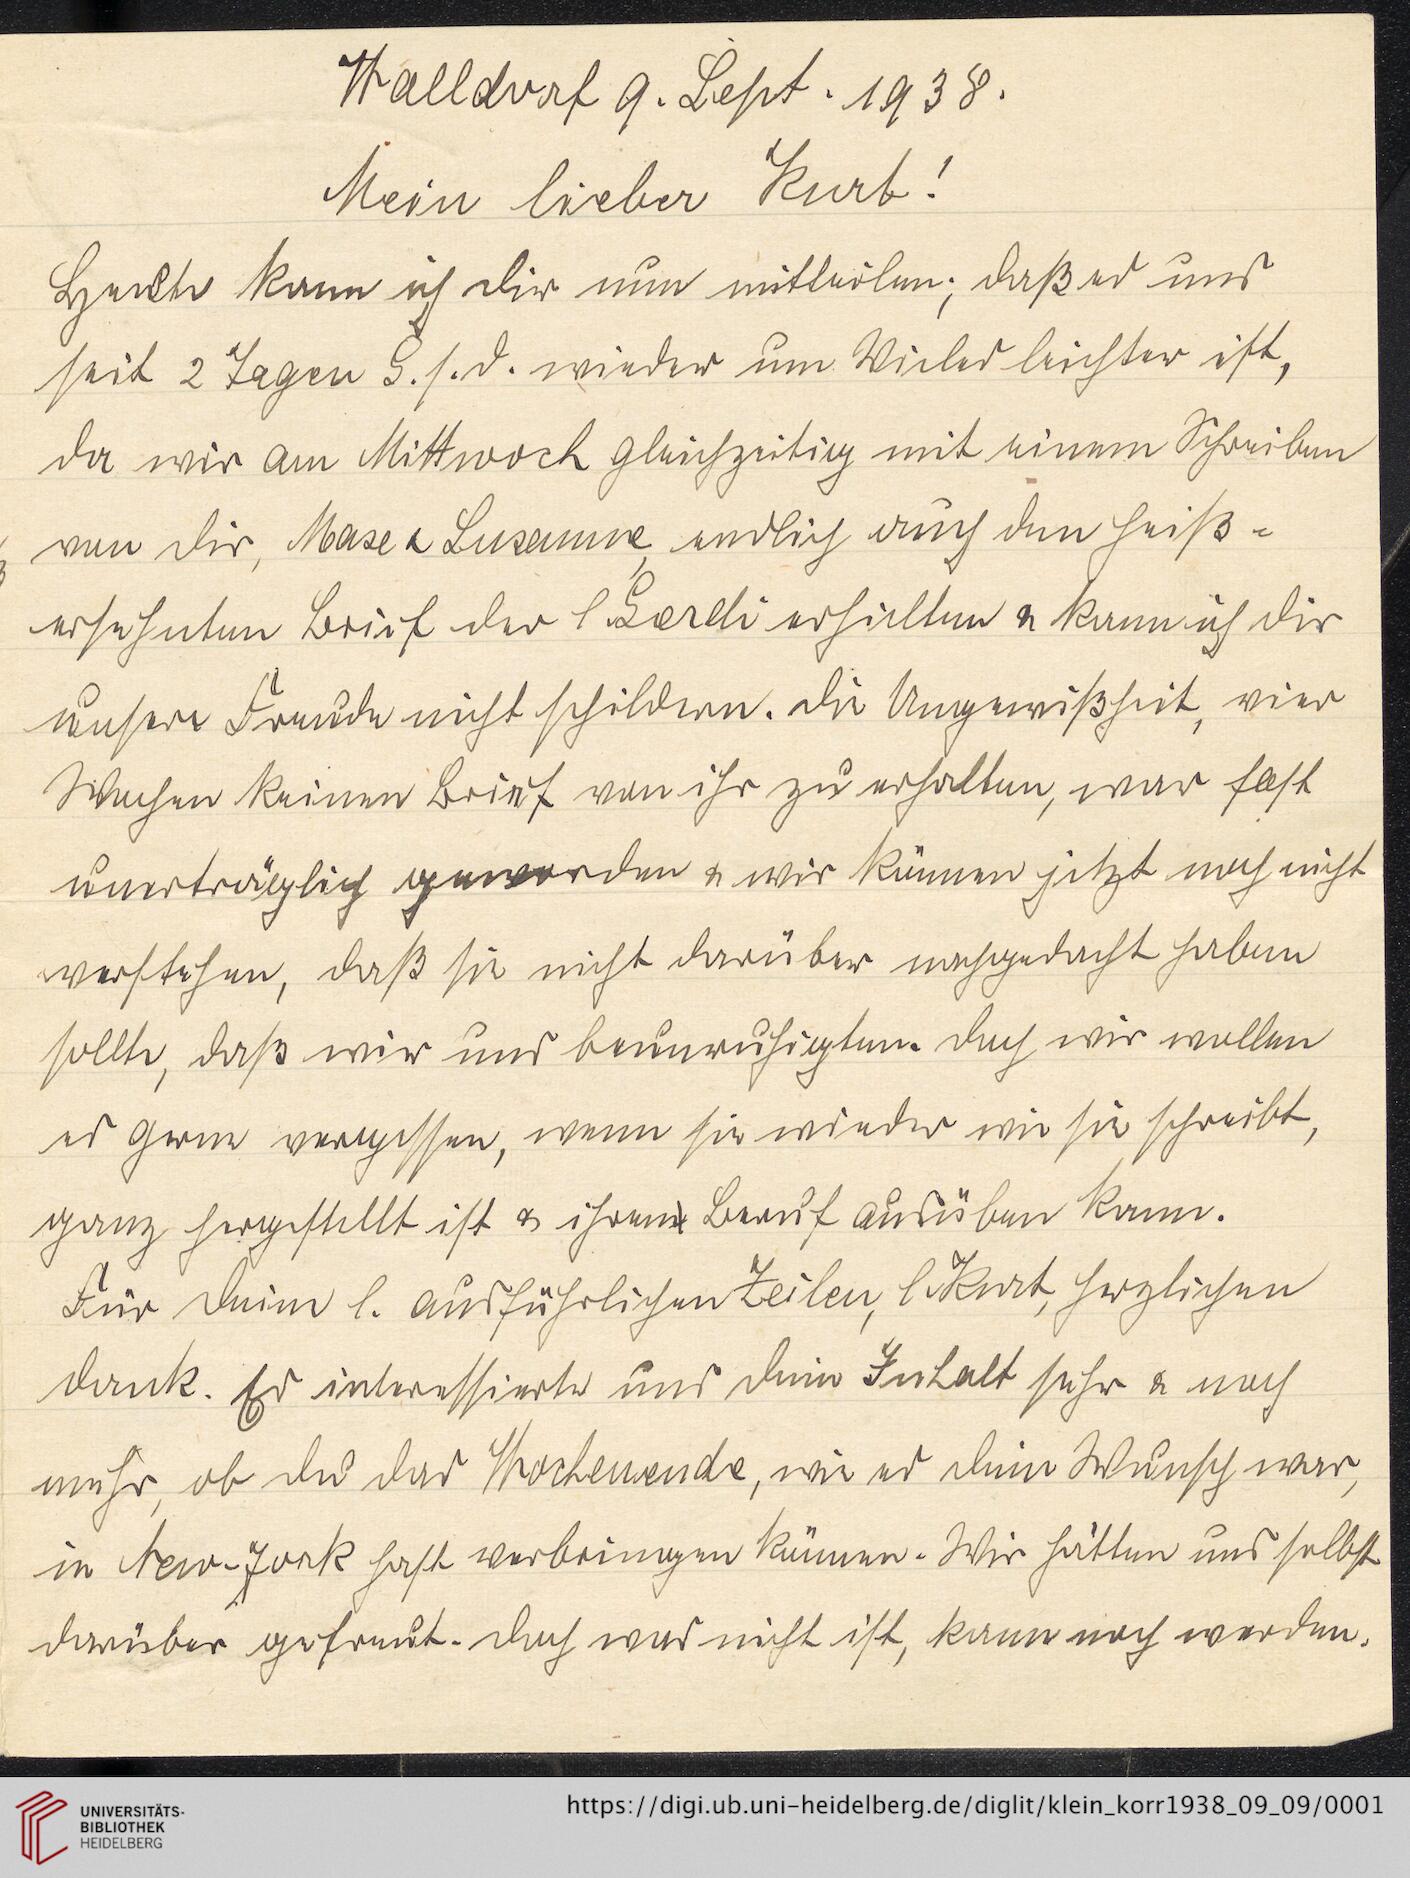 Walldorf 9. Sept. 1938.
Mein lieber Kurt!
Heute kann ich dir nun mitteilen, daß es uns
seit 2 Tagen G. s. d. wieder um Vieles leichter ist,
da wir am Mittwoch gleichzeitig mit einem Schreiben
von dir, Mase & Susanne, endlich auch den heiß-
ersehnten Brief der l. Gerdi erhielten & kann ich dir
unsere Freude nicht schildern. Die Ungewißheit, vier
Wochen keinen Brief von ihr zu erhalten, war fast
unerträglich geworden & wir können jetzt noch nicht
verstehen, daß sie nicht darüber nachgedacht haben
sollte, daß wir uns beunruhigten. Doch wir wollen
es gerne vergessen, wenn sie wieder wie sie schreibt,
ganz hergestellt ist & ihren Beruf ausüben kann.
Für deine l. ausführlichen Zeilen, l. Kurt, herzlichen
Dank. Es interessierte uns dein Inhalt sehr & noch
mehr, ob du das Wochenende, wie es dein Wunsch war,
in New-York hast verbringen können. Wir hätten uns selbst
darüber gefreut. Doch was nicht ist, kann noch werden.
UNIVERSITÄTS-
BIBLIOTHEK
HEIDELBERG
https://digi.ub.uni-heidelberg.de/diglit/klein_korr1938_09_09/0001